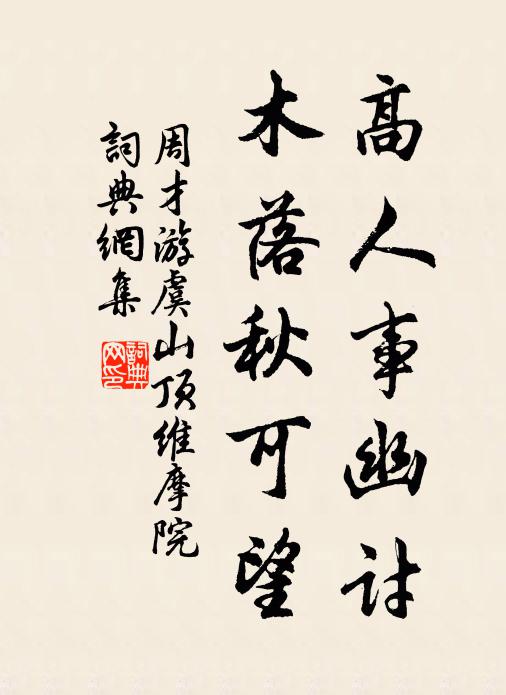 高人事幽討
木落秋可望
周才游虞山頂維摩院
詞典網集
詞典網印